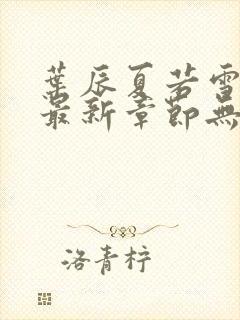 葉辰夏若雪
最新章節無
洛青柠